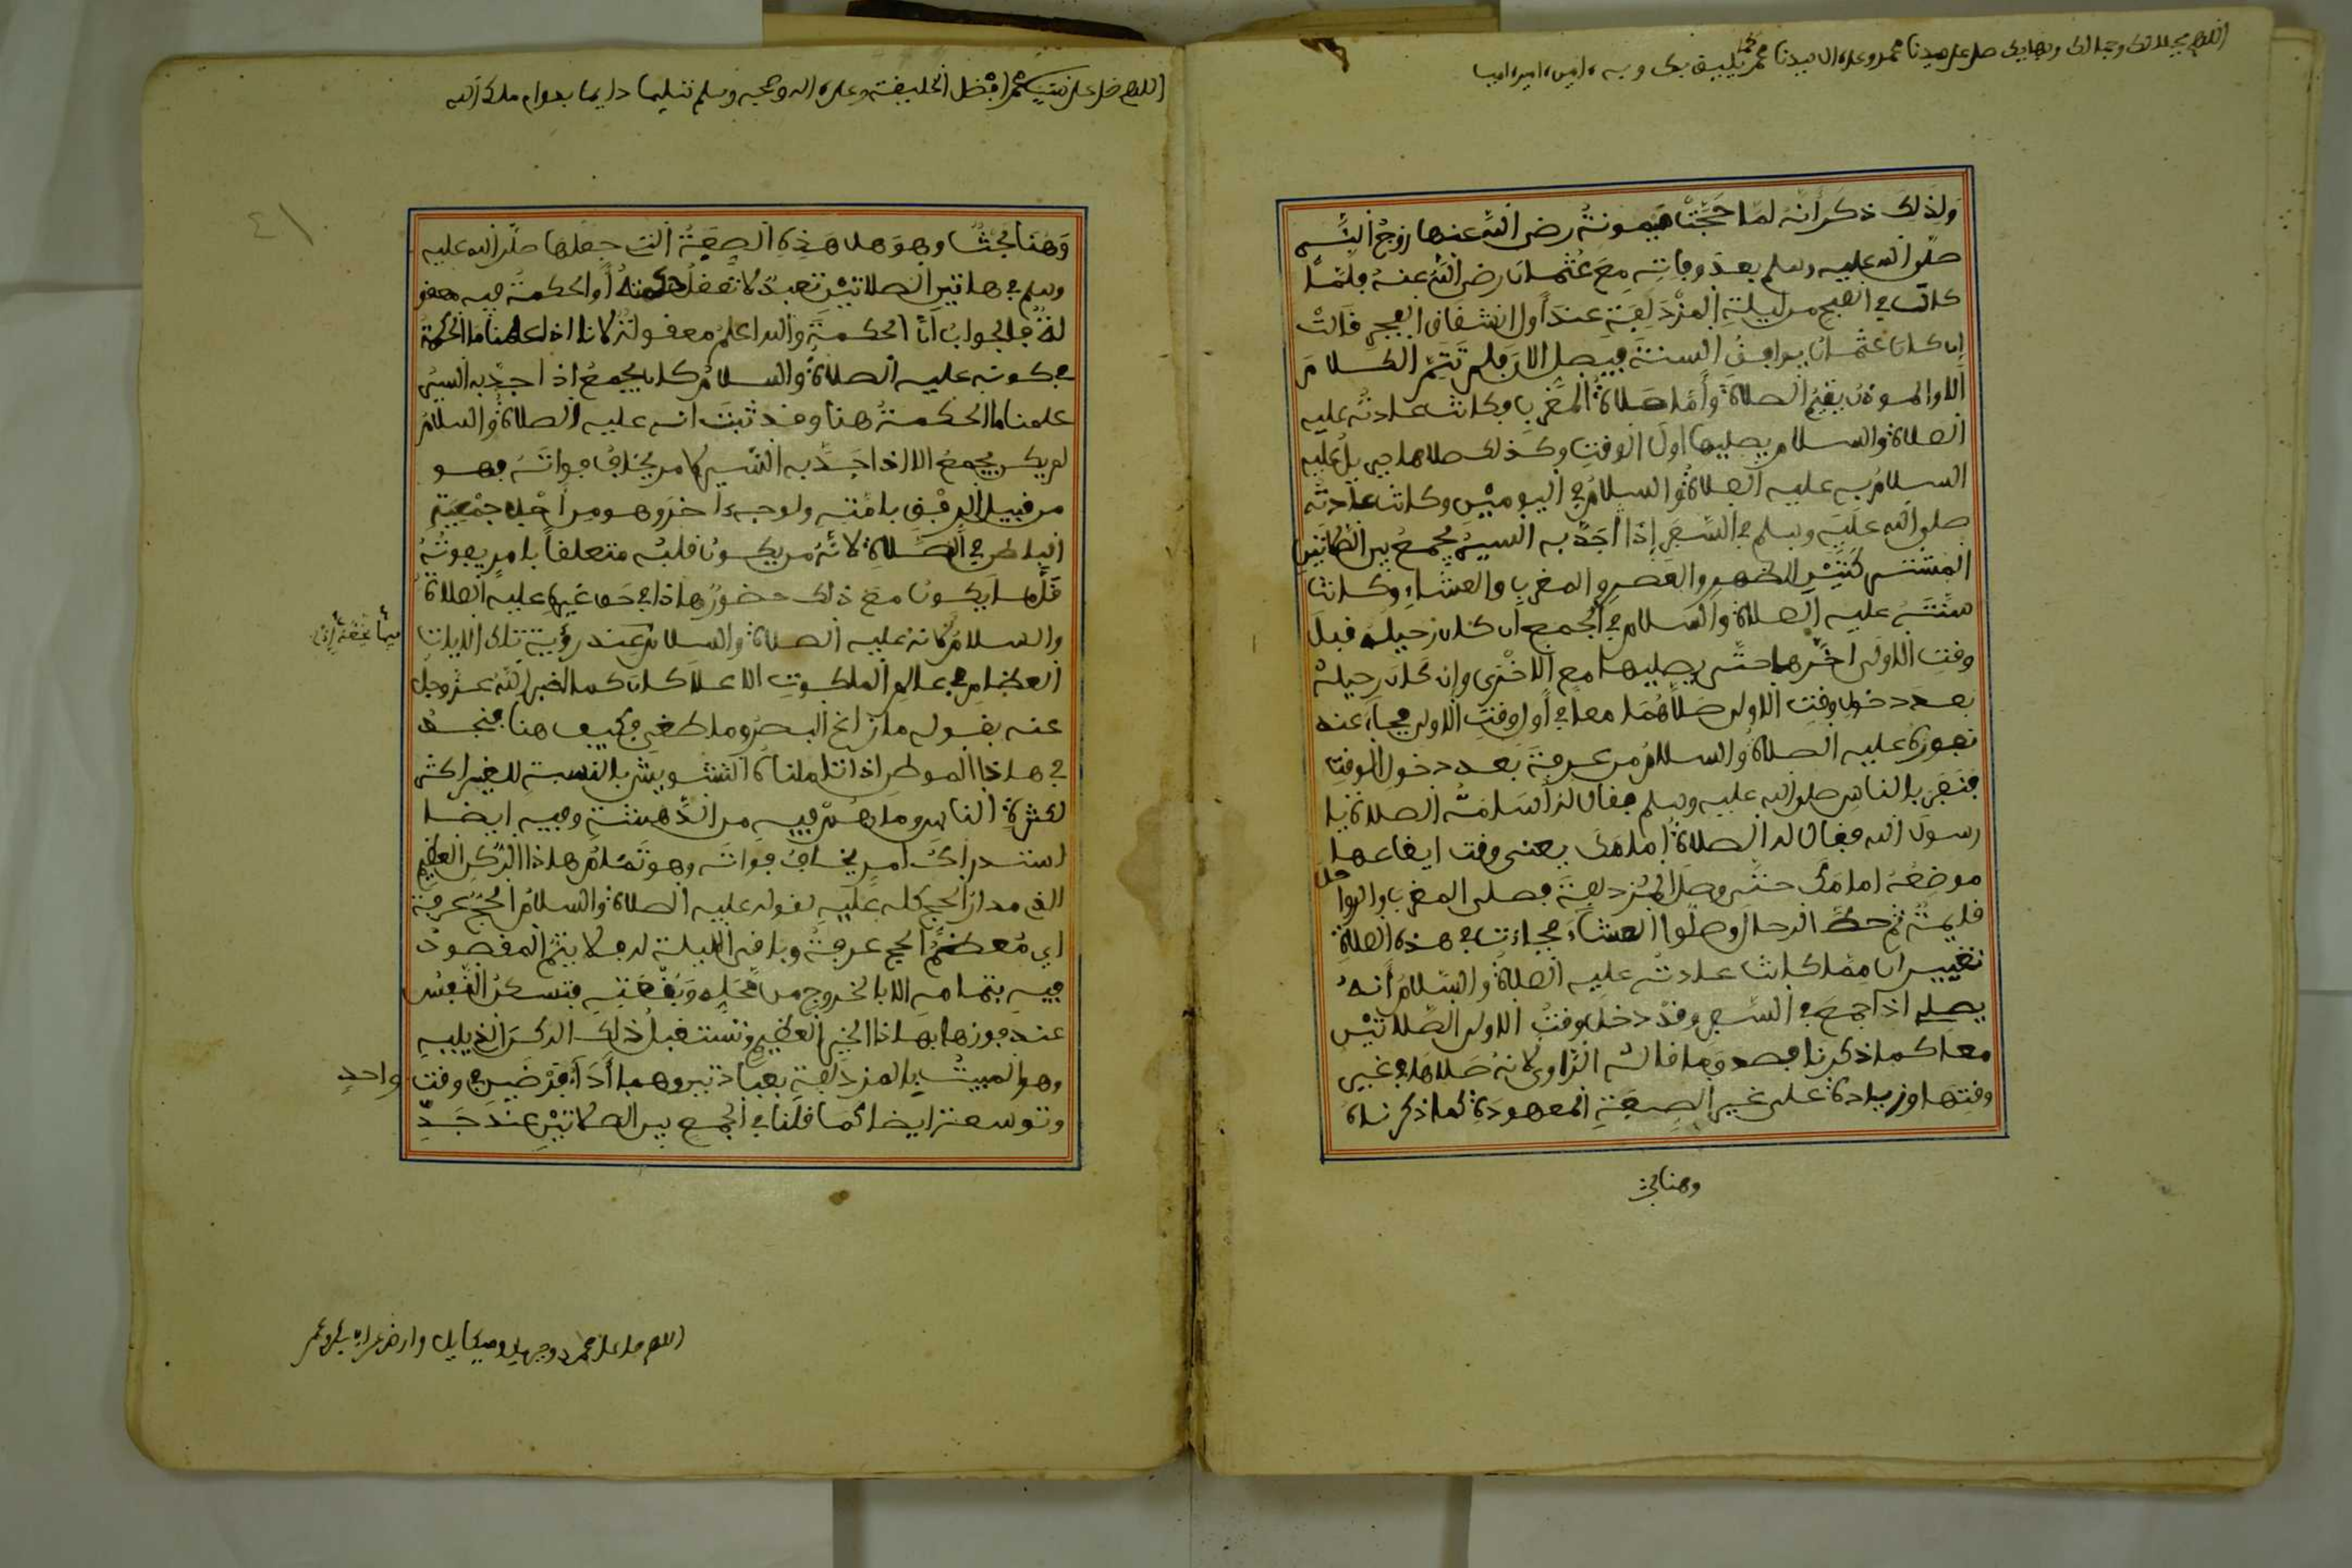 اللهم بجلالك وجمالك وبهايك صل على سيدنا محمد وعلى ال سيدنا محمد كما يليق بك وبه امين امين امين
ولذلك ذكر أنه لما حجت ميمونة رضي الله عنها زوج النبي
صلى الله عليه وسلم بعد وفاته مع عثمان رضي الله عنه فلما
كان في الصبح من ليلة المزدلفة عند أول انشقاق الفجر قالت
ان كان عثمان يوافق السنة فيصل الان فلم تتم الكلام
الا والموذن يقيم الصلاة وأما صلاة المغرب فكانت عادته عليه
الصلاة والسلام يصليها اول الوقت وكذلك صلاها جبريل عليه
السلام به عليه الصلاة والسلام في اليومين وكانت عادته
صلى الله عليه وسلم في السفر إذا أجد به السير يجمع بين الصلاتين
المشتركتين الظهر والعصر والمغرب والعشاء وكانت
سنته عليه الصلاة والسلام في الجمع ان كان رحيله قبل
وقت الاولى اخرها حتى يصليها مع الاخرى وإن كان رحيله
بعد دخول وقت الاولى صلاهما معا في أول وقت الاولى فجاء عند
نفوره عليه الصلاة والسلام من عرفة بعد دخول الوقت
فنفر بالناس صلى الله عليه وسلم فقال له أسامة الصلاة يا
رسول الله فقال له الصلاة أمامك يعني وقت ايقاعها
موضعه امامك حتى وصل المزدلفة فصلى المغرب والرواحل
قايمة ثم حط الرحال وصلوا العشاء فجاءت في هذه الصلاة
تغييران مما كانت عادته عليه الصلاة والسلام أنه
يصلي اذا جمع في السفر وقد دخل وقت الاولى الصلاتين
معا كما ذكرنا فصدق ما قاله الراوي لانه صلاها في غير
وقتها وزيادة على غير الصفة المعهودة كما ذكرناه
وهنا بحث
اللهم صل على محمد افضل الخليقة وعلى اله وصحبه وسلم تسليما دايما بدوام ملك الله
٤١
وهنا بحث وهو هل هذه الصفة التي جعلها صلى الله عليه
وسلم في هاتين الصلاتين تعبد لا تعقل حكمته أو الحكمة فيه معقو
لة فالجواب أن الحكمة والله اعلم معقولة لانا اذا علمنا ما الحكمة
في كونه عليه الصلاة والسلام كان يجمع إذا اجد به السير
علمنا ما الحكمة هنا وقد ثبت انه عليه الصلاة والسلام
لم يكن يجمع الا اذا اجد به السير لامر يخاف فواته فهو
من قبيل الرفق بامته ولوجه اخر وهو من أجل جمعية
الباطن في الصلاة لانه من يكون قلبه متعلقا بامر يفوته
قلما يكون مع ذلك حضور هاذا في حق غيره عليه الصلاة
والسلام لانه عليه الصلاة والسلام عند رؤية تلك الايات
العظام في عالم الملكوت الاعلا كان كما اخبر الله عز وجل
عنه بقوله ما زاغ البصر وما طغى فكيف هنا فنجد
في هاذا الموطن اذا تاملناه التشويش بالنسبة للغير اكثر
لكثرة الناس وما هم فيه من الدهشة وفيه ايضا
استدراك امر يخاف فواته وهو تمام هاذا الركن العظيم
الذي مدار الحج كله عليه لقوله عليه الصلاة والسلام الحج عرفة
اي معظم الحج عرفة وباقي الليلة له فلا يتم المقصود
فيه بتمامه الا بالخروج من محله وبقعته فتسكن النفس
عند فوزها بهاذا الخير العظيم وتستقبل ذلك الركن الذي يليه
وهو المبيت بالمزدلفة بعبادتين وهما أداء فرضين في وقت واحد
وتوسعة ايضا كما قلنا في الجمع بين الصلاتين عند جد
اللهم صل على محمد وجبريل وميكايل وارض عن ابي بكر وعمر